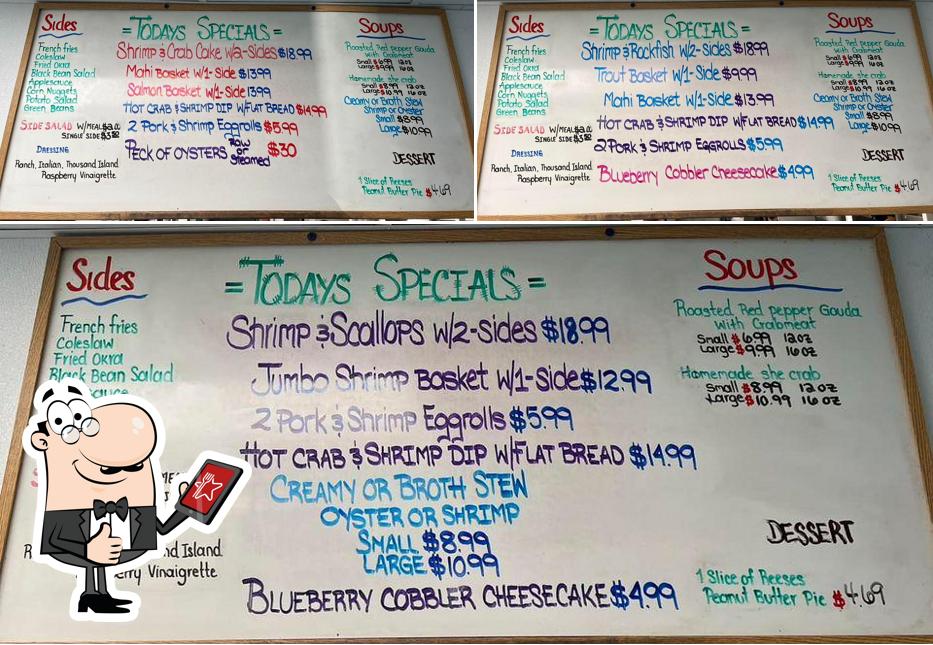 Sides
French fries
Coleslaw
Fried Okra
Black Bean Salad
Applesauce
Corn Nuggets
Potato Salad
Green Beans
SIDE SALAD W/MEAL
SINGLE SIDE
DRESSING
Ranch, Italian, Thousand Island
Raspberry Vinaigrette
=TODAYS SPECIALS=
Shrimp & Crab Cake w/2-Sides $18.99
Mahi Basket w/1-Side $13.99
Salmon Basket w/1-Side 13.99
HOT CRAB & SHRIMP DIP W/FLAT BREAD $14.99
2 Pork & Shrimp Eggrolls $5.99
PECK OF OYSTERS Raw or Steamed $30
Soups
Roasted Red pepper Gouda
with Crabmeat
Small $6.99 12oz
Large $9.99 16oz
Homemade she crab
Small $8.99 12oz
Large $10.99 16oz
Creamy or Broth Stew
Shrimp or Oyster
Small $8.99
Large $10.99
DESSERT
1 Slice of Reeses
Peanut Butter Pie $4.69
Sides
French fries
Coleslaw
Fried Okra
Black Bean Salad
Applesauce
Corn Nuggets
Potato Salad
Green Beans
SIDE SALAD W/MEAL
SINGLE SIDE
DRESSING
Ranch, Italian, Thousand Island
Raspberry Vinaigrette
=TODAYS SPECIALS=
Shrimp & Rockfish w/2-Sides $18.99
Trout Basket w/1-Side $9.99
Mahi Basket w/1-Side $13.99
HOT CRAB & SHRIMP DIP W/FLAT BREAD $14.99
2 PORK & SHRIMP EGGROLLS $5.99
Blueberry Cobbler Cheesecake $4.99
Soups
Roasted Red pepper Gouda
with Crabmeat
Small $6.99 12oz
Large $9.99 16oz
Homemade she crab
Small $8.99 12oz
Large $10.99 16oz
Creamy or Broth Stew
Shrimp or Oyster
Small $8.99
Large $10.99
DESSERT
1 Slice of Reeses
Peanut Butter Pie $4.69
Sides
French fries
Coleslaw
Fried Okra
Black Bean Salad
sauce
nd Island
Vinaigrette
=TODAYS SPECIALS=
Shrimp & Scallops w/2-sides $18.99
Jumbo Shrimp Basket w/1-Side $12.99
2 Pork & Shrimp Eggrolls $5.99
HOT CRAB & SHRIMP DIP W/FLAT BREAD $14.99
CREAMY OR BROTH STEW
OYSTER OR SHRIMP
SMALL $8.99
LARGE $10.99
BLUEBERRY COBBLER CHEESECAKE $4.99
Soups
Roasted Red pepper Gouda
with Crabmeat
Small $6.99 12oz
Large $9.99 16oz
Homemade she crab
Small $8.99 12oz
Large $10.99 16oz
DESSERT
1 Slice of Reeses
Peanut Butter Pie $4.69